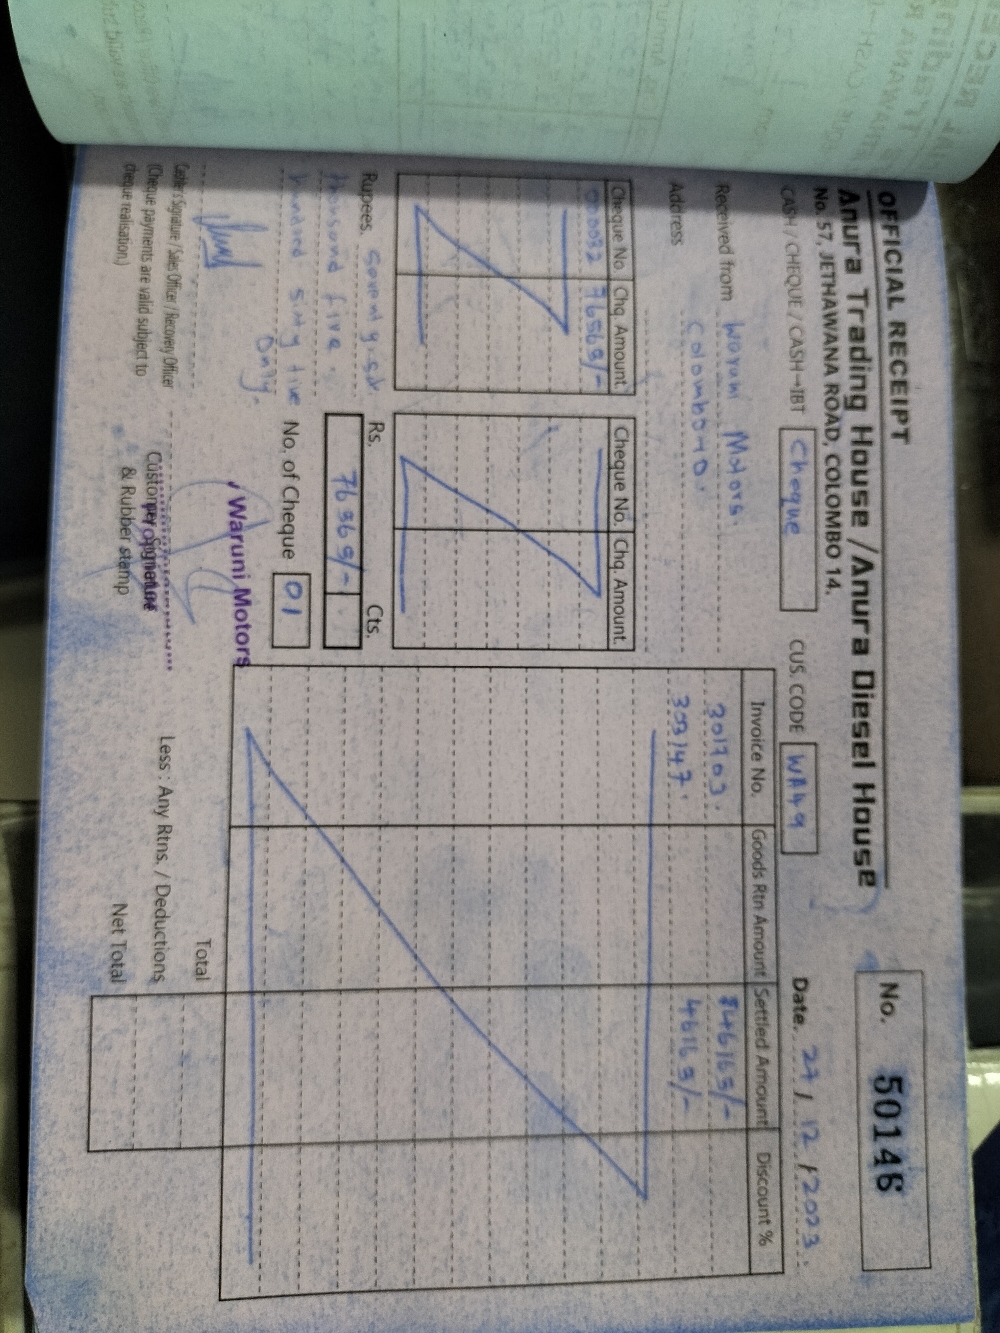 OFFICIAL RECEIPT
Anura Trading House /Anura Diesel House
No. 57, JETHAWANA ROAD, COLOMBO 14.
No. 50146
CASH / CHEQUE / CASH-IBT Cheque CUS. CODE WA49 Date. 27 / 12 / 2023.
Received from Waruni Motors.
Address Colombo-10.
Cheque No. Chq. Amount. Cheque No. Chq. Amount.
76565/-
Invoice No. Goods Rtn Amount Settled Amount Discount %
301703.
303147. 46165/-
Rupees. Seventy six
thousand five
hundred sixty five
Only.
Rs. Cts.
76565/-
No. of Cheque 01
Waruni Motors
Proprietor
Cashier's Signature / Sales Officer / Recovery Officer
(Cheque payments are valid subject to
cheque realisation.)
Customer Signature
& Rubber stamp
Total
Less : Any Rtns. / Deductions
Net Total